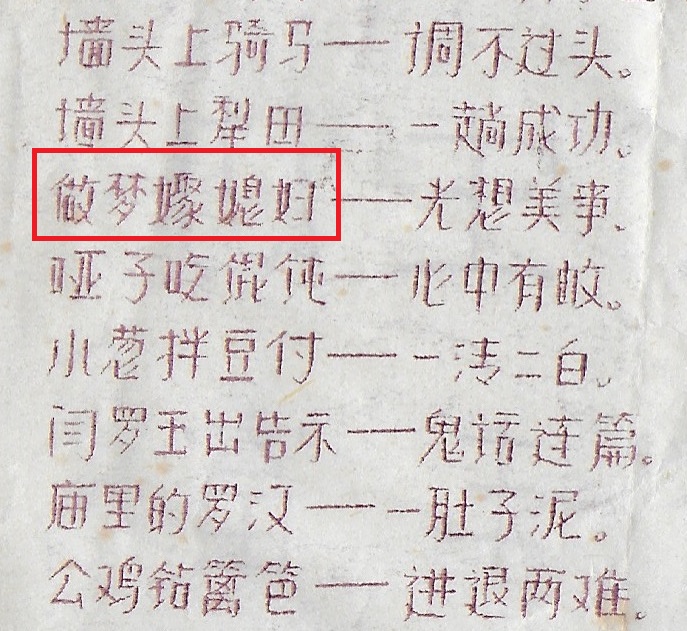 墙头上骑马——调不过头。
墙头上犁田——一趟成功。
做梦娶媳妇——光想美事。
哑子吃馄饨——心中有数。
小葱拌豆付——一清二白。
闫罗王出告示——鬼话连篇。
庙里的罗汉——一肚子泥。
公鸡钻篱笆——进退两难。